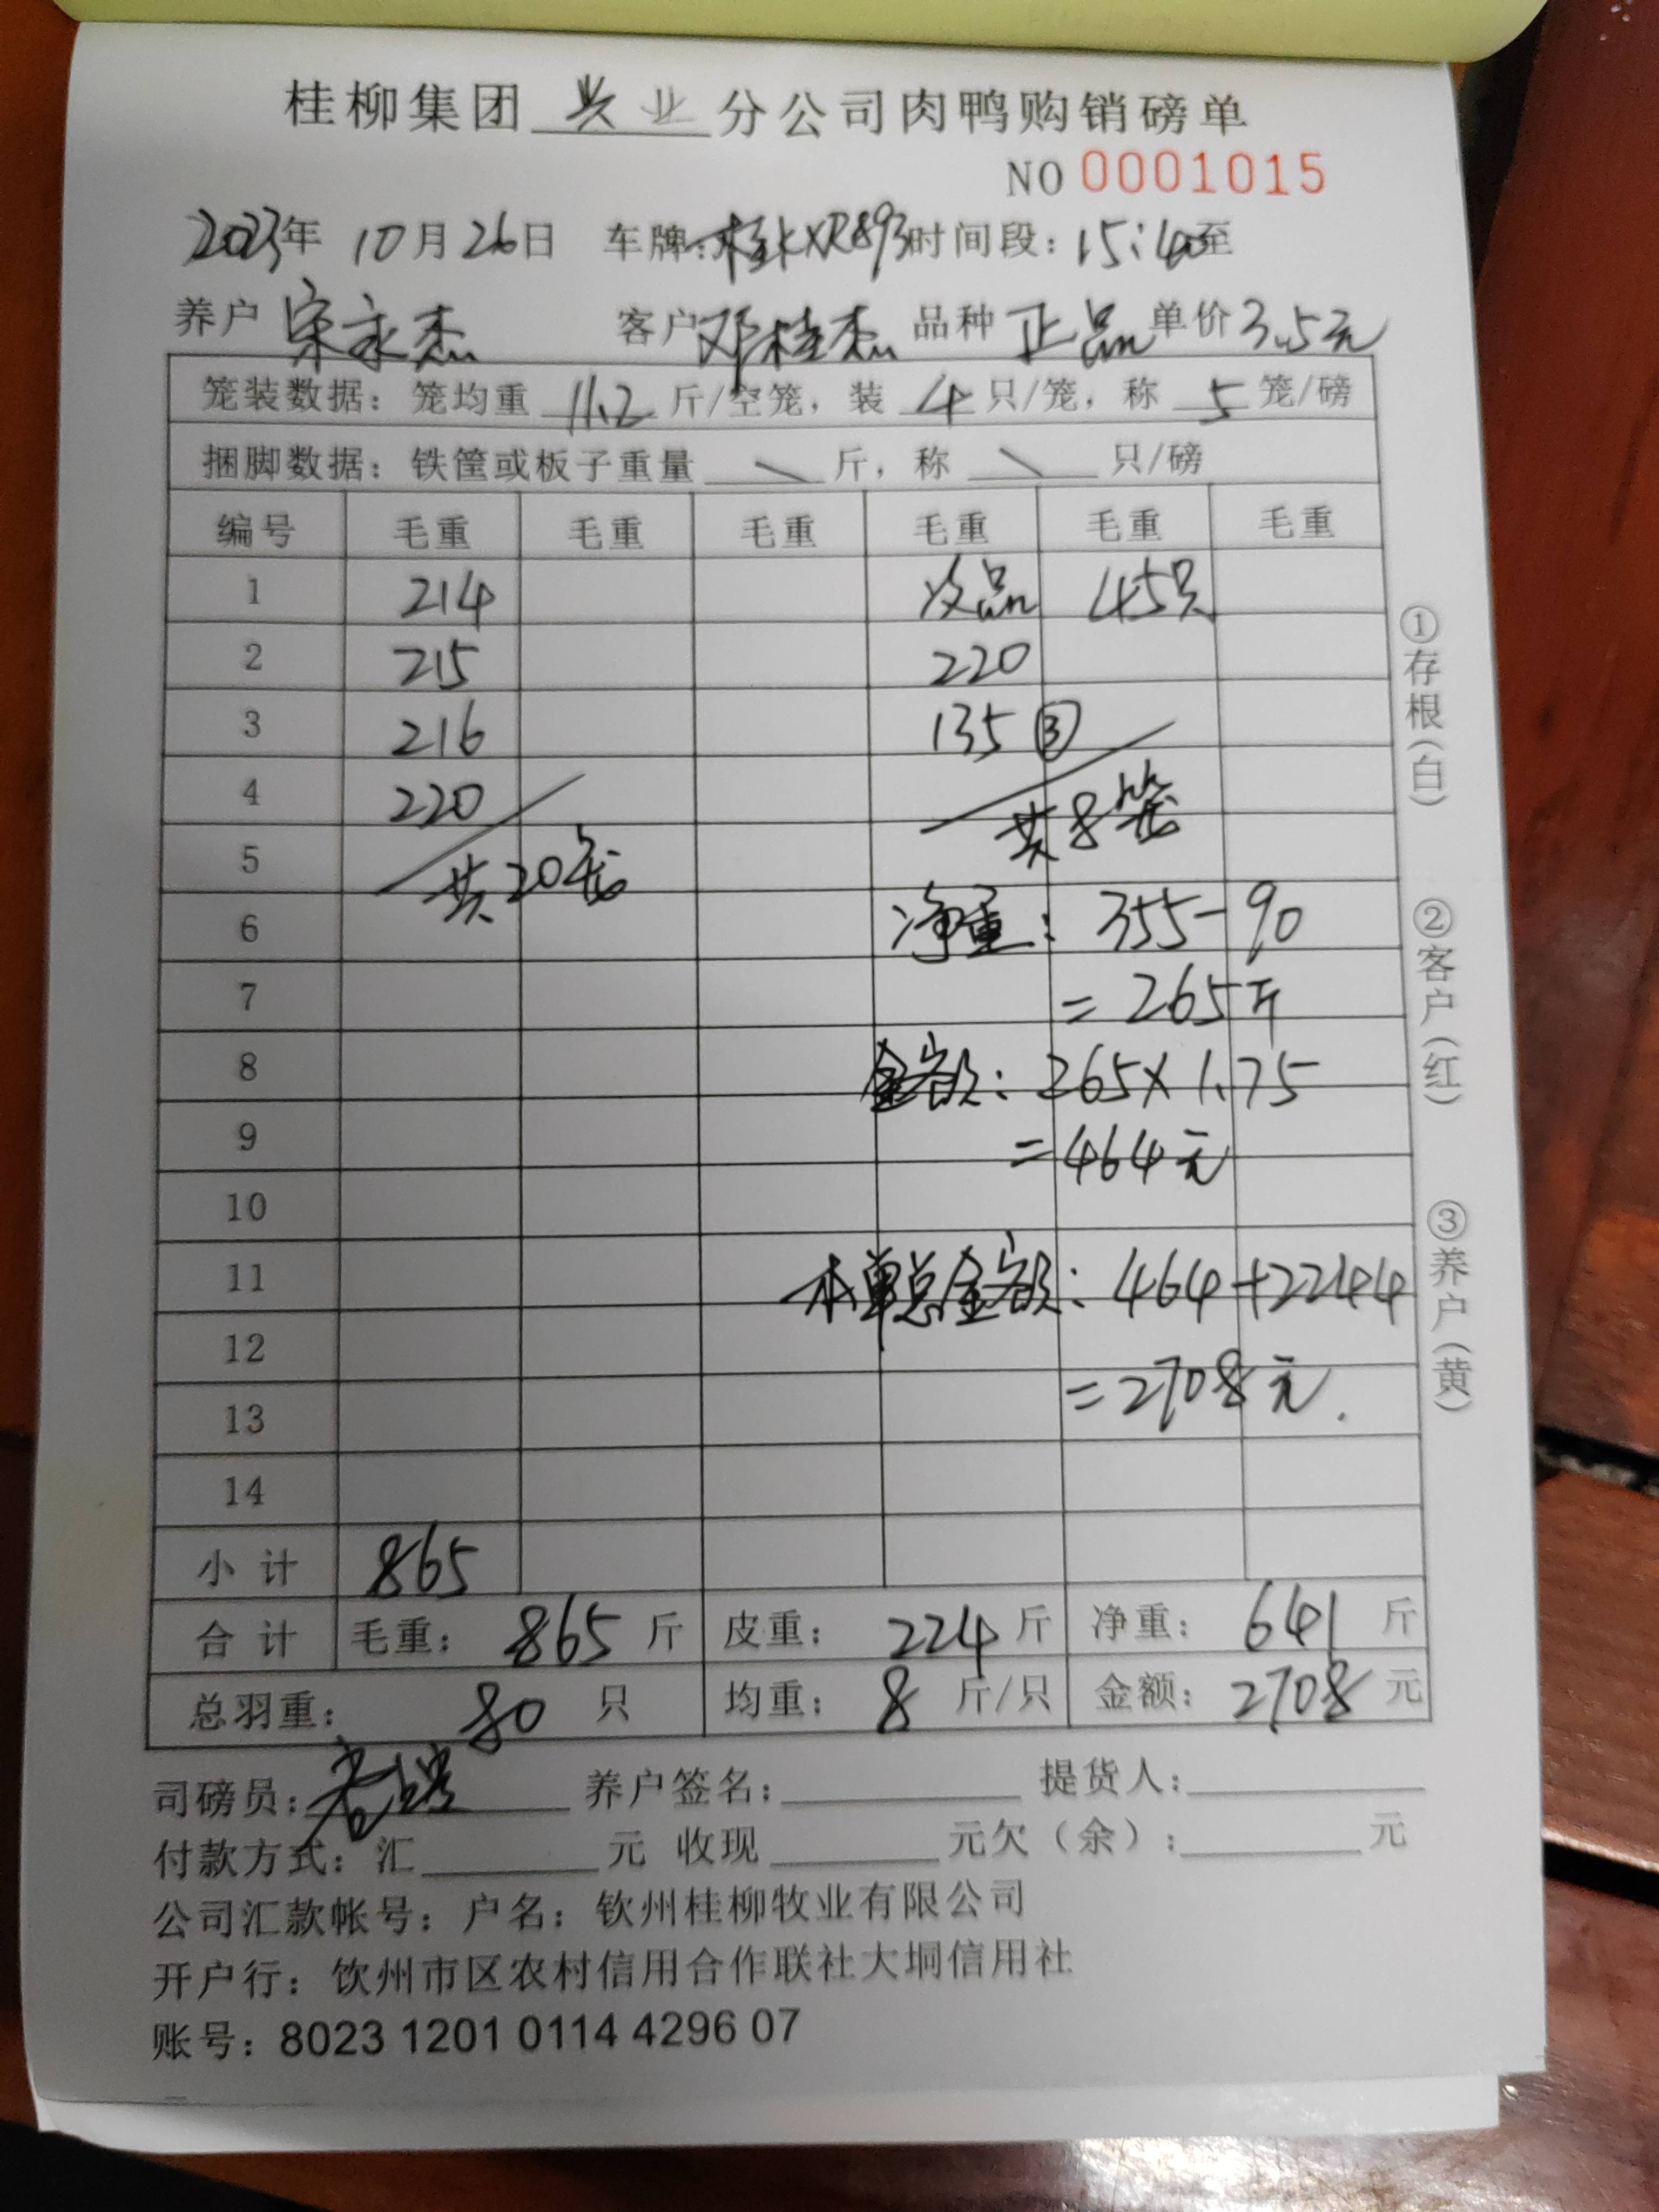 桂柳集团 兴业 分公司肉鸭购销磅单
NO 0001015
2023年 10月26日 车牌:桂KXR893时间段:15:40至
养户 宋永杰 客户 邓桂杰 品种 正品 单价 3.5元
笼装数据:笼均重 11.2 斤/空笼,装 4 只/笼,称 5 笼/磅
捆脚数据:铁筐或板子重量 \ 斤,称 \ 只/磅
编号 毛重 毛重 毛重 毛重 毛重 毛重
1 214 次品 45只
2 215 220
3 216 135 ③
4 220 共8笼
5 共20笼
6 净重:355-90
7 =265斤
8 金额:265×1.75
9 =464元
10
11 本单总金额:464+2244
12 =2708元.
13
14
小计 865
合计 毛重: 865 斤 皮重: 224 斤 净重: 641 斤
总羽重: 80 只 均重: 8 斤/只 金额: 2708 元
司磅员: 养户签名: 提货人:
付款方式:汇 元 收现 元欠(余): 元
公司汇款帐号:户名:钦州桂柳牧业有限公司
开户行:饮州市区农村信用合作联社大垌信用社
账号:8023 1201 0114 4296 07
①存根(白)
②客户(红)
③养户(黄)